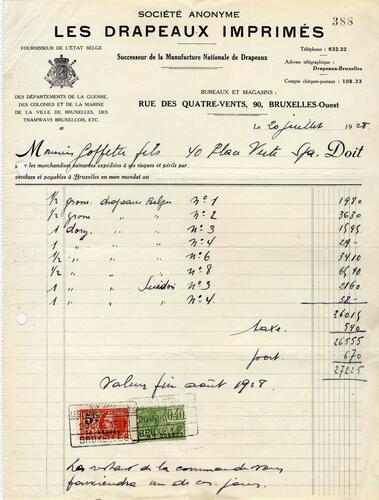 SOCIÉTÉ ANONYME
388
LES DRAPEAUX IMPRIMÉS
FOURNISSEUR DE L'ÉTAT BELGE
Successeur de la Manufacture Nationale de Drapeaux
Téléphone : 632.32
Adresse télégraphique :
Drapeaux-Bruxelles
Compte chèques-postaux : 109.33
DES DÉPARTEMENTS DE LA GUERRE,
DES COLONIES ET DE LA MARINE
DE LA VILLE DE BRUXELLES, DES
TRAMWAYS BRUXELLOIS, ETC.
BUREAUX ET MAGASINS :
RUE DES QUATRE-VENTS, 90, BRUXELLES-Ouest
Le 20 juillet 1928
Monsieur Goffette fils 40 Place Verte Spa. Doit
pour les marchandises suivantes expédiées à ses risques et périls par
vendues et payables à Bruxelles en mon mandat au
1/2 grosse drapeaux Belges N° 1 1980
1/2 grosse " " N° 2 3630
1 douz " " N° 3 1595
1 " " N° 4
1/2 " " N° 6 3410
1/2 " " N° 8
1 " Suédois N° 3 2160
1 " " N° 4
26015
taxe 540
26555
port 670
27225
Valeur fin août 1928
BRUXELLES
BRUXELLES
Le restant de la commande vous
parviendra un de ces jours.